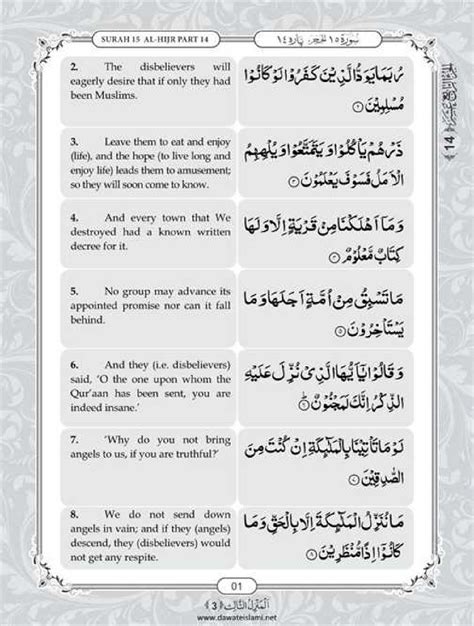 SURAH 15 AL-HIJR PART 14
سورة ١٥ الحجر پاره ١٤
2. The disbelievers will
eagerly desire that if only they had
been Muslims.
رُبَمَا يَوَدُّ الَّذِيْنَ كَفَرُوْا لَوْ كَانُوْا
مُسْلِمِيْنَ
3. Leave them to eat and enjoy
(life), and the hope (to live long and
enjoy life) leads them to amusement;
so they will soon come to know.
ذَرْهُمْ يَاْكُلُوْا وَ يَتَمَتَّعُوْا وَ يُلْهِهِمُ
الْاَمَلُ فَسَوْفَ يَعْلَمُوْنَ
4. And every town that We
destroyed had a known written
decree for it.
وَ مَاۤ اَهْلَكْنَا مِنْ قَرْيَةٍ اِلَّا وَ لَهَا
كِتَابٌ مَّعْلُوْمٌ
5. No group may advance its
appointed promise nor can it fall
behind.
مَا تَسْبِقُ مِنْ اُمَّةٍ اَجَلَهَا وَ مَا
يَسْتَاْخِرُوْنَ
6. And they (i.e. disbelievers)
said, ‘O the one upon whom the
Qur'aan has been sent, you are
indeed insane.’
وَ قَالُوْا يٰۤاَيُّهَا الَّذِيْ نُزِّلَ عَلَيْهِ
الذِّكْرُ اِنَّكَ لَمَجْنُوْنٌ
7. ‘Why do you not bring
angels to us, if you are truthful?’
لَوْ مَا تَاْتِيْنَا بِالْمَلٰٓىِٕكَةِ اِنْ كُنْتَ مِنَ
الصّٰدِقِيْنَ
8. We do not send down
angels in vain; and if they (angels)
descend, they (disbelievers) would
not get any respite.
مَا نُنَزِّلُ الْمَلٰٓىِٕكَةَ اِلَّا بِالْحَقِّ وَ مَا
كَانُوْۤا اِذًا مُّنْظَرِيْنَ
14
01
المنزل الثالث ﴿3﴾
www.dawateislami.net